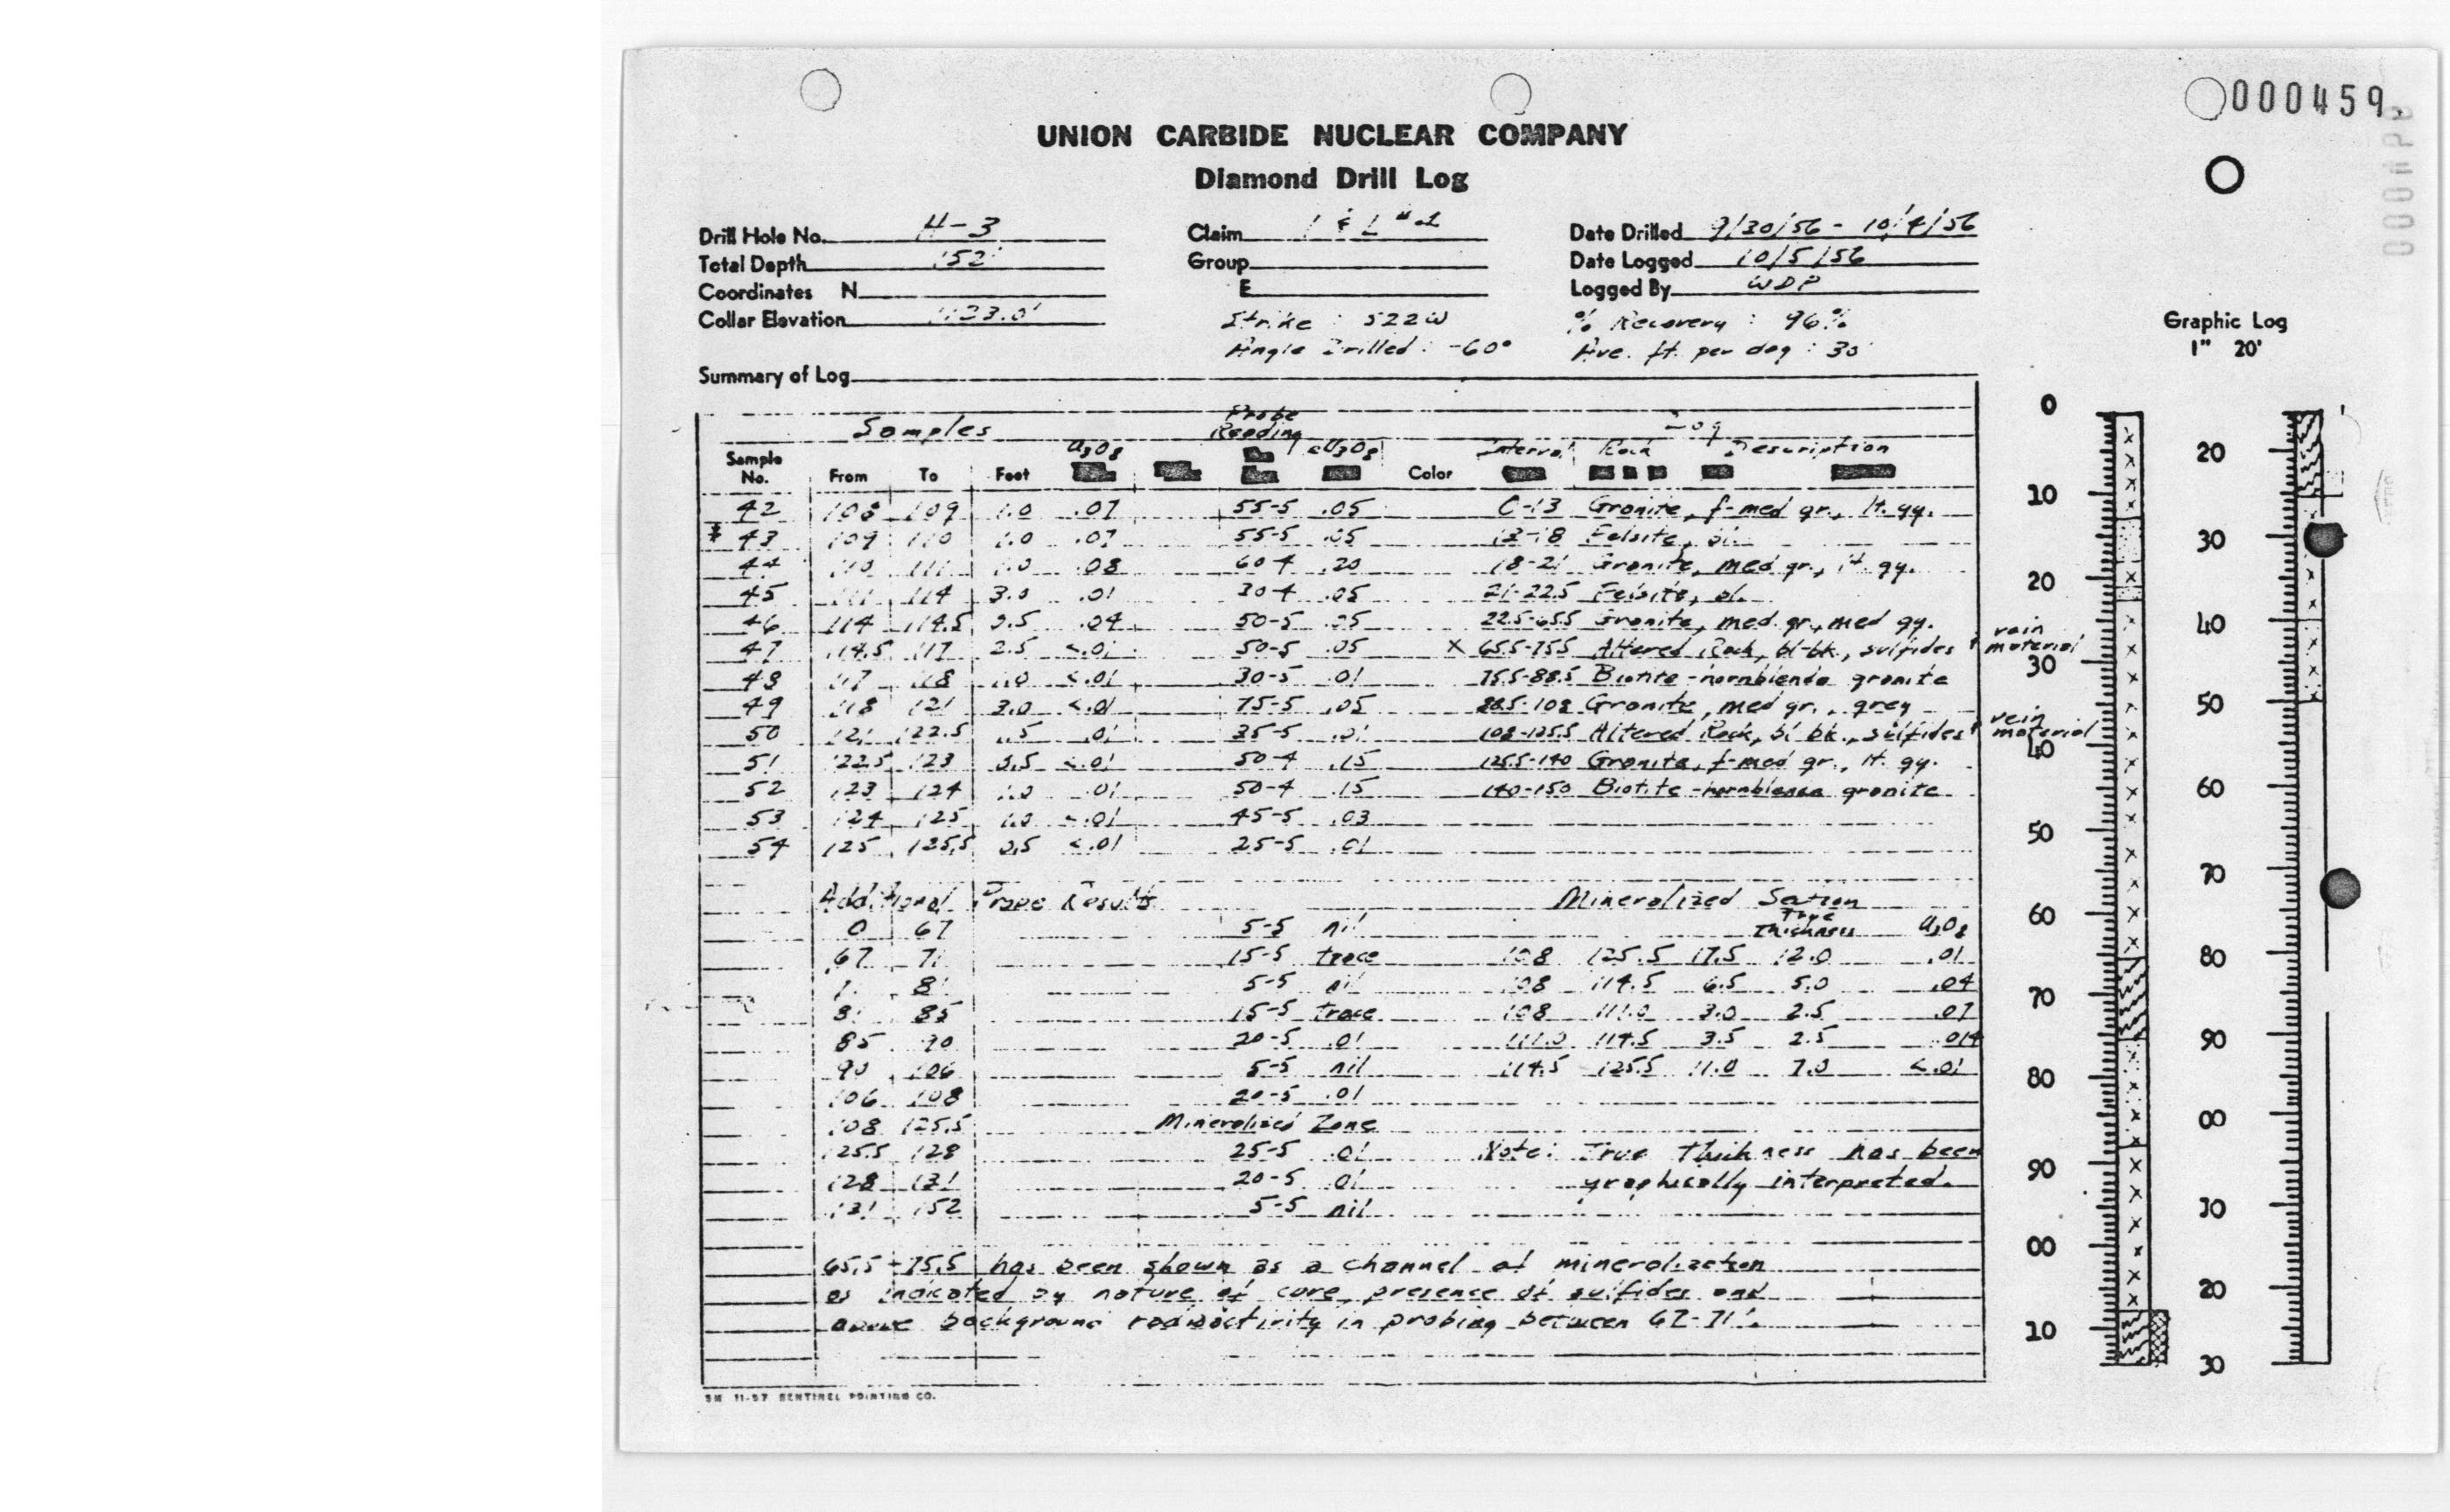 000459
UNION CARBIDE NUCLEAR COMPANY
Diamond Drill Log
Drill Hole No. H-3 Claim Date Drilled 9/30/56 - 10/4/56
Total Depth 152' Group Date Logged 10/5/56
Coordinates N E Logged By WDP
Collar Elevation Strike : S22W % Recovery : 96%
Angle Drilled : -60° Ave. ft. per day : 30'
Summary of Log
Graphic Log
1" 20'
Samples Probe Reading Log
Sample No. From To Feet U3O8 eU3O8 Color Interval Rock Description
42 108 109 1.0 .07 55-5 .05 0-13 Granite, f-med gr., lt. gy.
* 43 109 110 1.0 .07 55-5 .05 13-18 Felsite,
44 110 111 1.0 .08 60-4 .20 18-21 Granite, med gr., lt. gy.
45 111 114 3.0 .01 30-4 .05 21-22.5 Felsite,
46 114 114.5 0.5 .04 50-5 .05 22.5-65.5 Granite, med. gr., med gy.
47 114.5 117 2.5 <.01 50-5 .05 X 65.5-75.5 Altered Rock, bl-bk., sulfides vein material
48 117 118 1.0 <.01 30-5 .01 75.5-88.5 Biotite-hornblende granite
49 118 121 3.0 <.01 75-5 .05 88.5-108 Granite, med gr., grey
50 121 122.5 1.5 .01 35-5 .01 108-125.5 Altered Rock, bl bk., sulfides vein material
51 122.5 123 0.5 <.01 50-4 .15 125.5-140 Granite, f-med gr., lt. gy.
52 123 124 1.0 .01 50-4 .15 140-150 Biotite-hornblende granite
53 124 125 1.0 <.01 45-5 .03
54 125 125.5 0.5 <.01 25-5 .01
Additional Probe Results Mineralized Section
0 67 5-5 nil True Thickness U3O8
67 71 15-5 trace 108 125.5 17.5 12.0 .01
71 81 5-5 nil 108 114.5 6.5 5.0 .04
81 85 15-5 trace 108 111.0 3.0 2.5 .07
85 90 20-5 .01 111.0 114.5 3.5 2.5 .014
90 106 5-5 nil 114.5 125.5 11.0 7.0 <.01
106 108 20-5 .01
108 125.5 Mineralized Zone
125.5 128 25-5 .01 Note: True Thickness has been
128 131 20-5 .01 graphically interpreted.
131 152 5-5 nil
65.5-75.5 has been shown as a channel of mineralization
as indicated by nature of core, presence of sulfides and
above background radioactivity in probing between 67-71'.
SM 11-57 SENTINEL PRINTING CO.
0
10
20
30
40
50
60
70
80
90
00
10
20
30
40
50
60
70
80
90
00
10
20
30